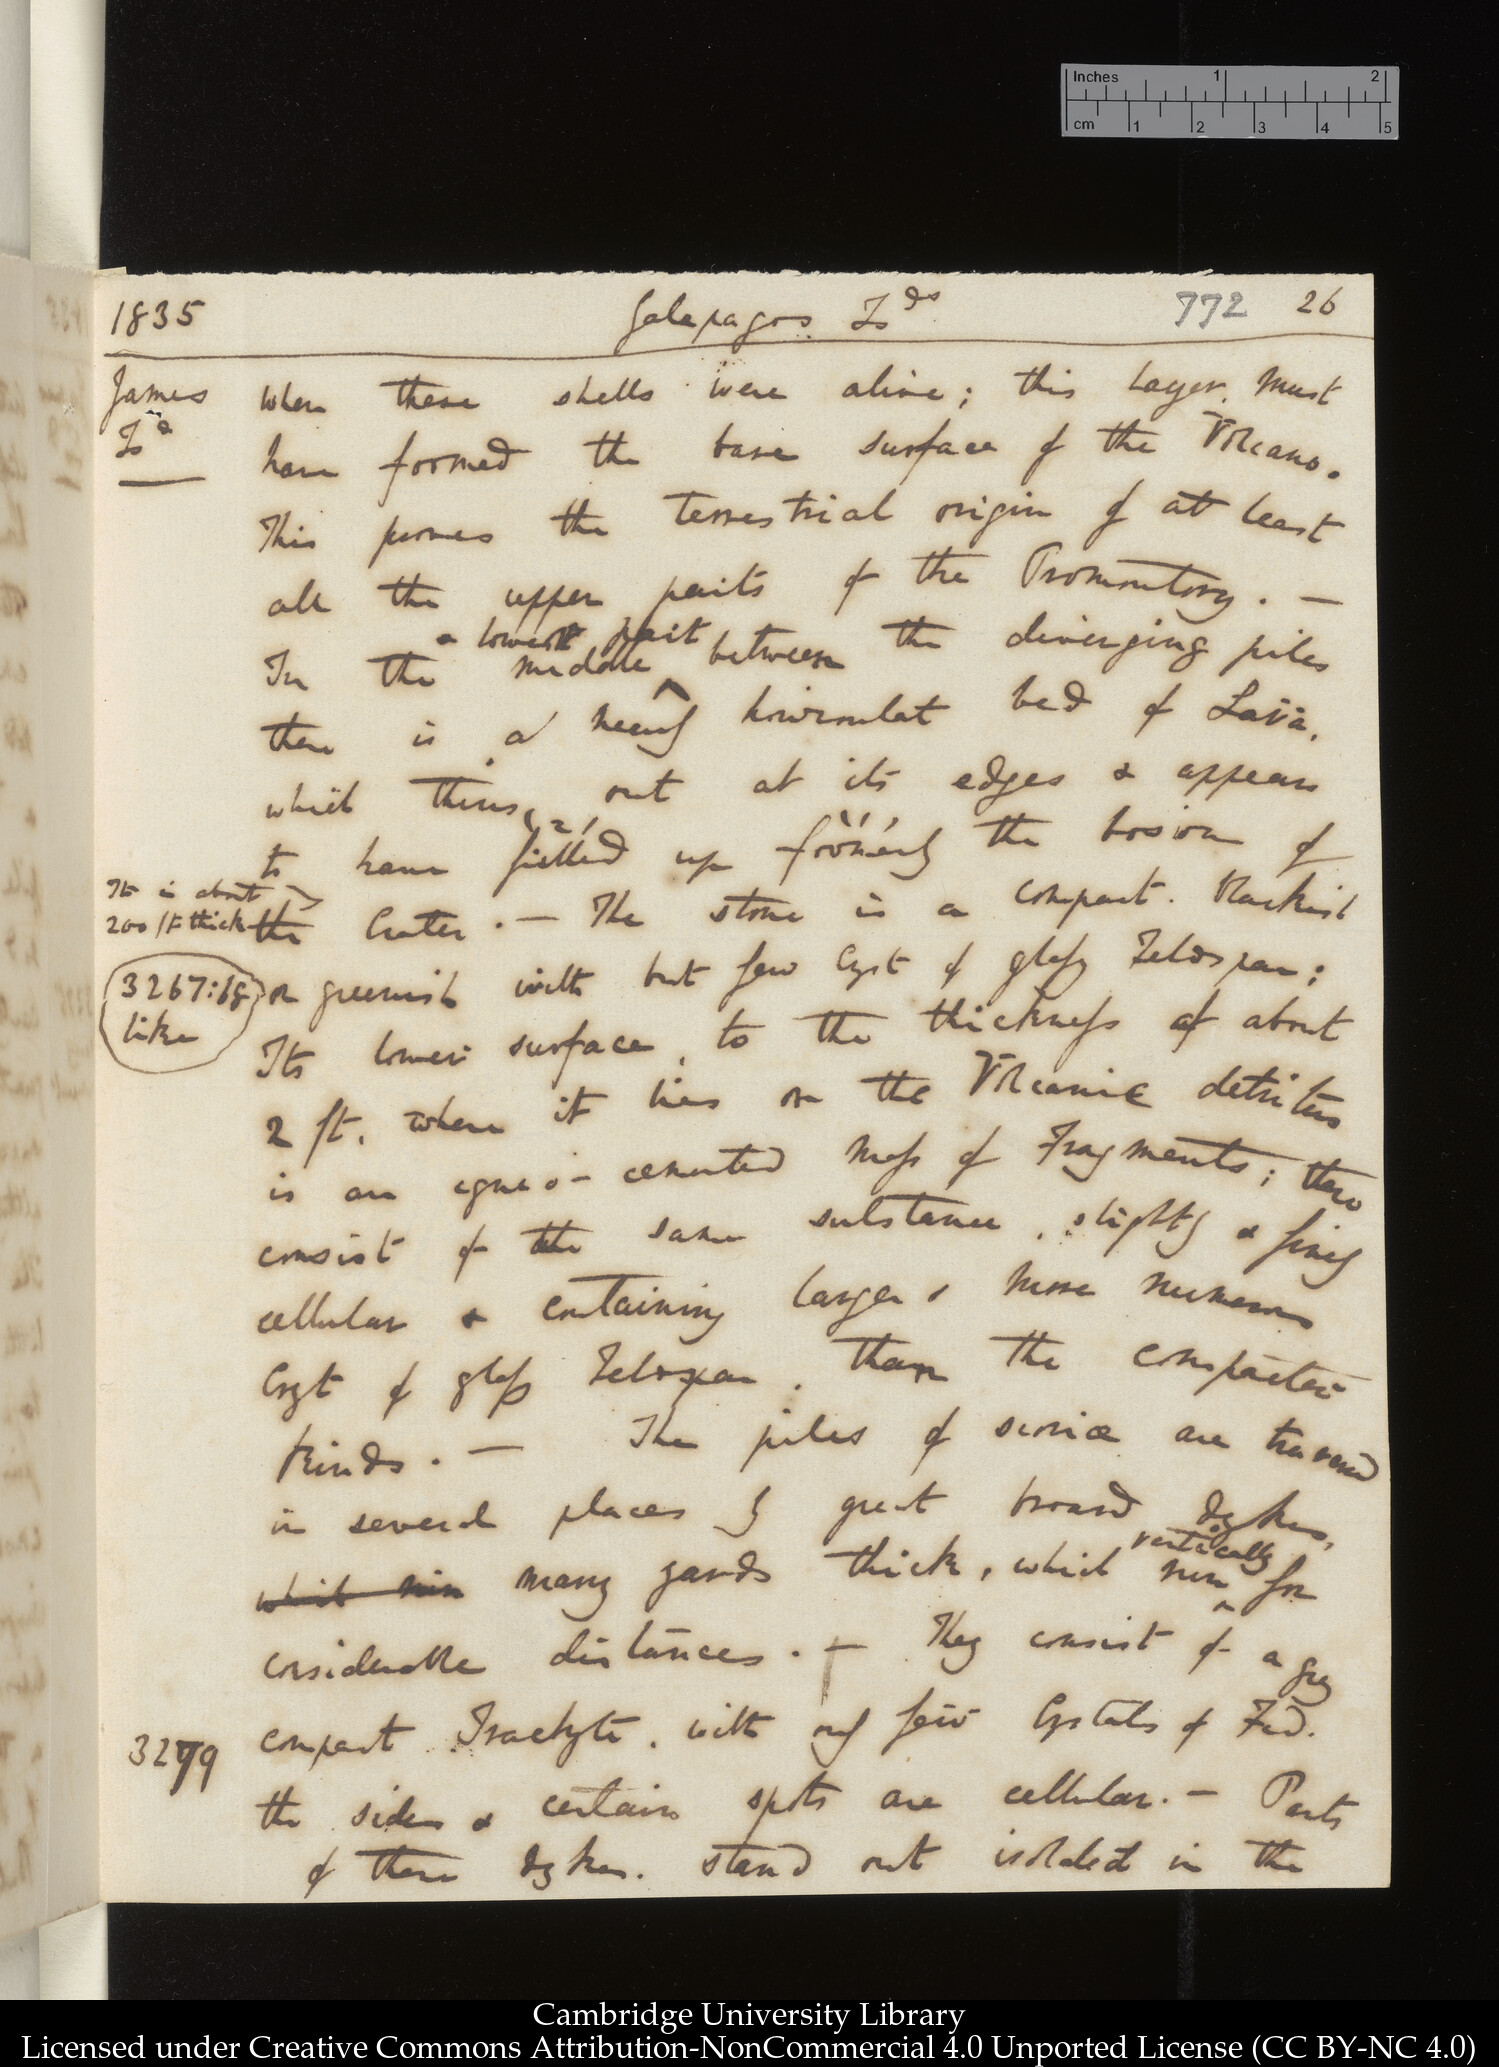 Inches 1 2
cm 1 2 3 4 5
1835 Galapagos Is^ds 772 26
James
I^d
when these shells were alive; this layer, must
have formed the bare surface of the Volcano.
This proves the terrestrial origin of at least
all the upper parts of the Promontory. —
& lowest part
In the middle between the diverging piles
there is a nearly horizontal bed of Lava,
which thins out at its edges & appears
(2)
to have filled up formerly the bosom of
It is about
200 ft thick
the Crater. — The stone is a compact. blackish
3267:68
like
or greenish with but few Cryst of glassy Feldspar;
Its lower surface, to the thickness of about
2 ft. where it lies on the Volcanic detritus
is an igneo-cemented mass of Fragments; these
consist of the same substance, slightly & finely
cellular & containing larger & more numerous
Cryst of glass Feldspar, than the compacter
kinds. — The piles of scoriæ are traversed
in several places by great broard dykes,
vertically
which run many yards thick, which run for
considerable distances. — They consist of a grey
3279
compact Trachyte, with only few Crystals of Fed.
the sides & certain spots are cellular. — Parts
of these dykes. stand out isolated in the
Cambridge University Library
Licensed under Creative Commons Attribution-NonCommercial 4.0 Unported License (CC BY-NC 4.0)